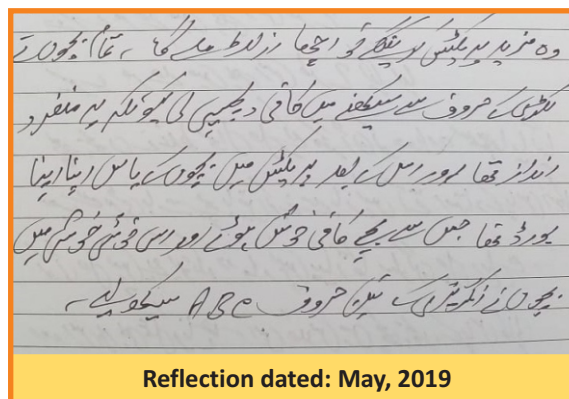 وہ مزید پریکٹس کرینگے تو اچھا رزلٹ ملے گا ۔ تمام بچوں نے
لکڑی کے حروف سے سیکھنے میں کافی دلچسپی لی کیونکہ یہ منفرد
انداز تھا اور اس کے بعد پریکٹس میں بچوں کے پاس اپنا اپنا
بورڈ تھا جس سے بچے کافی خوش ہوئے اور اسی خوشی خوشی میں
بچوں نے انگریزی کے تین حروف ABC سیکھ لیے ۔
Reflection dated: May, 2019